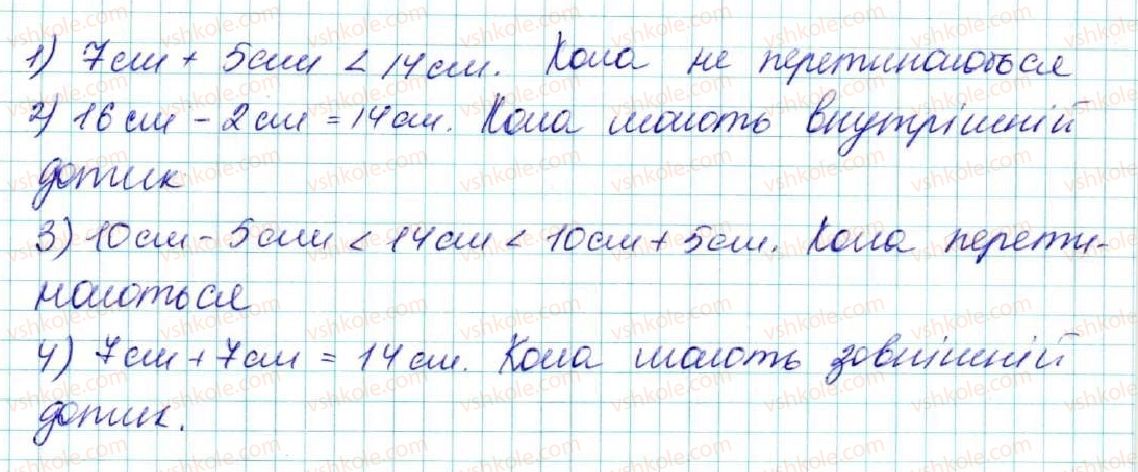 1) 7см + 5см < 14см. Кола не перетинаються
2) 16см - 2см = 14см. Кола мають внутрішній
дотик
3) 10см - 5см < 14см < 10см + 5см. Кола перети-
наються
4) 7см + 7см = 14см. Кола мають зовнішній
дотик.